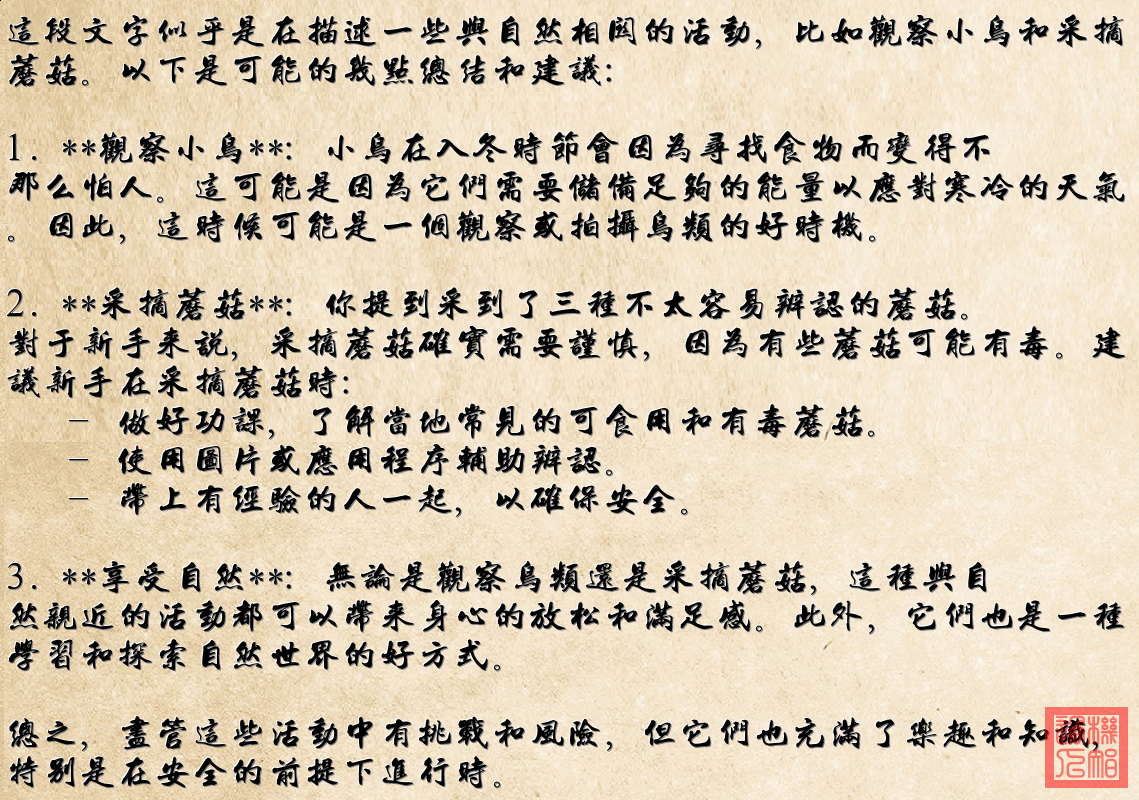 這段文字似乎是在描述一些與自然相関的活動，比如觀察小鳥和采摘
蘑菇。以下是可能的幾點總結和建議：
1. **觀察小鳥**： 小鳥在入冬時節會因為尋找食物而變得不
那么怕人。這可能是因為它們需要儲備足夠的能量以應對寒冷的天氣
。因此，這時候可能是一個觀察或拍攝鳥類的好時機。
2. **采摘蘑菇**： 你提到采到了三種不太容易辨認的蘑菇。
對于新手来說，采摘蘑菇確實需要謹慎，因為有些蘑菇可能有毒。建
議新手在采摘蘑菇時：
- 做好功課，了解當地常見的可食用和有毒蘑菇。
- 使用圖片或應用程序輔助辨認。
- 帶上有經驗的人一起，以確保安全。
3. **享受自然**： 無論是觀察鳥類還是采摘蘑菇，這種與自
然親近的活動都可以帶来身心的放松和滿足感。此外，它們也是一種
學習和探索自然世界的好方式。
總之，盡管這些活動中有挑戰和風險，但它們也充滿了樂趣和知識，
特別是在安全的前提下進行時。